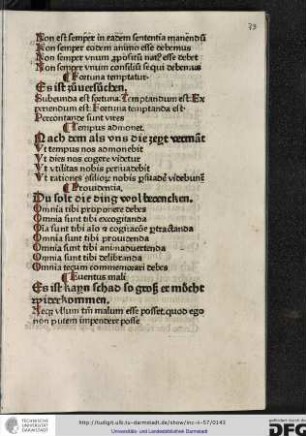 73
Non est semper in eadem sententia manendū
Non semper eodem animo esse debemus
Non semper vnum ꝓpositū natꝰ esse debet
Non semper vnum consiliū sequi debemus
¶ Fortuna temptatur.
Es ist zůuersůchen.
Subeunda est fortuna. Temptandum est. Ex
periendum est. Fortuna temptanda est.
Percontande sunt vires
¶ Tempus admonet.
Nach dem als vns die zeyt vermāt
Vt tempus nos admonebit
Vt dies nos cogere videtur
Vt vtilitas nobis persuadebit
Vt rationes ꝯsilioꝝ nobis ꝑsuadē videbunt̄
¶ Prouidentia.
Du solt die ding wol bedencken.
Omnia tibi proponere debes
Omnia sunt tibi excogitanda
Oīa sunt tibi aīo ⁊ cogitatōe ꝑtractanda
Omnia sunt tibi prouidenda
Omnia sunt tibi animaduertenda
Omnia sunt tibi delibranda
Omnia tecum commemorari debes
¶ Euentus mali
Es ist kayn schad so groß er möcht
widerkommen.
Neqꝫ vllum tm̄ malum esse posset. quod ego
non putem impendere posse
TECHNISCHE
UNIVERSITÄT
DARMSTADT
http://tudigit.ulb.tu-darmstadt.de/show/inc-ii-57/0143
Universitäts- und Landesbibliothek Darmstadt
gefördert durch die
DFG